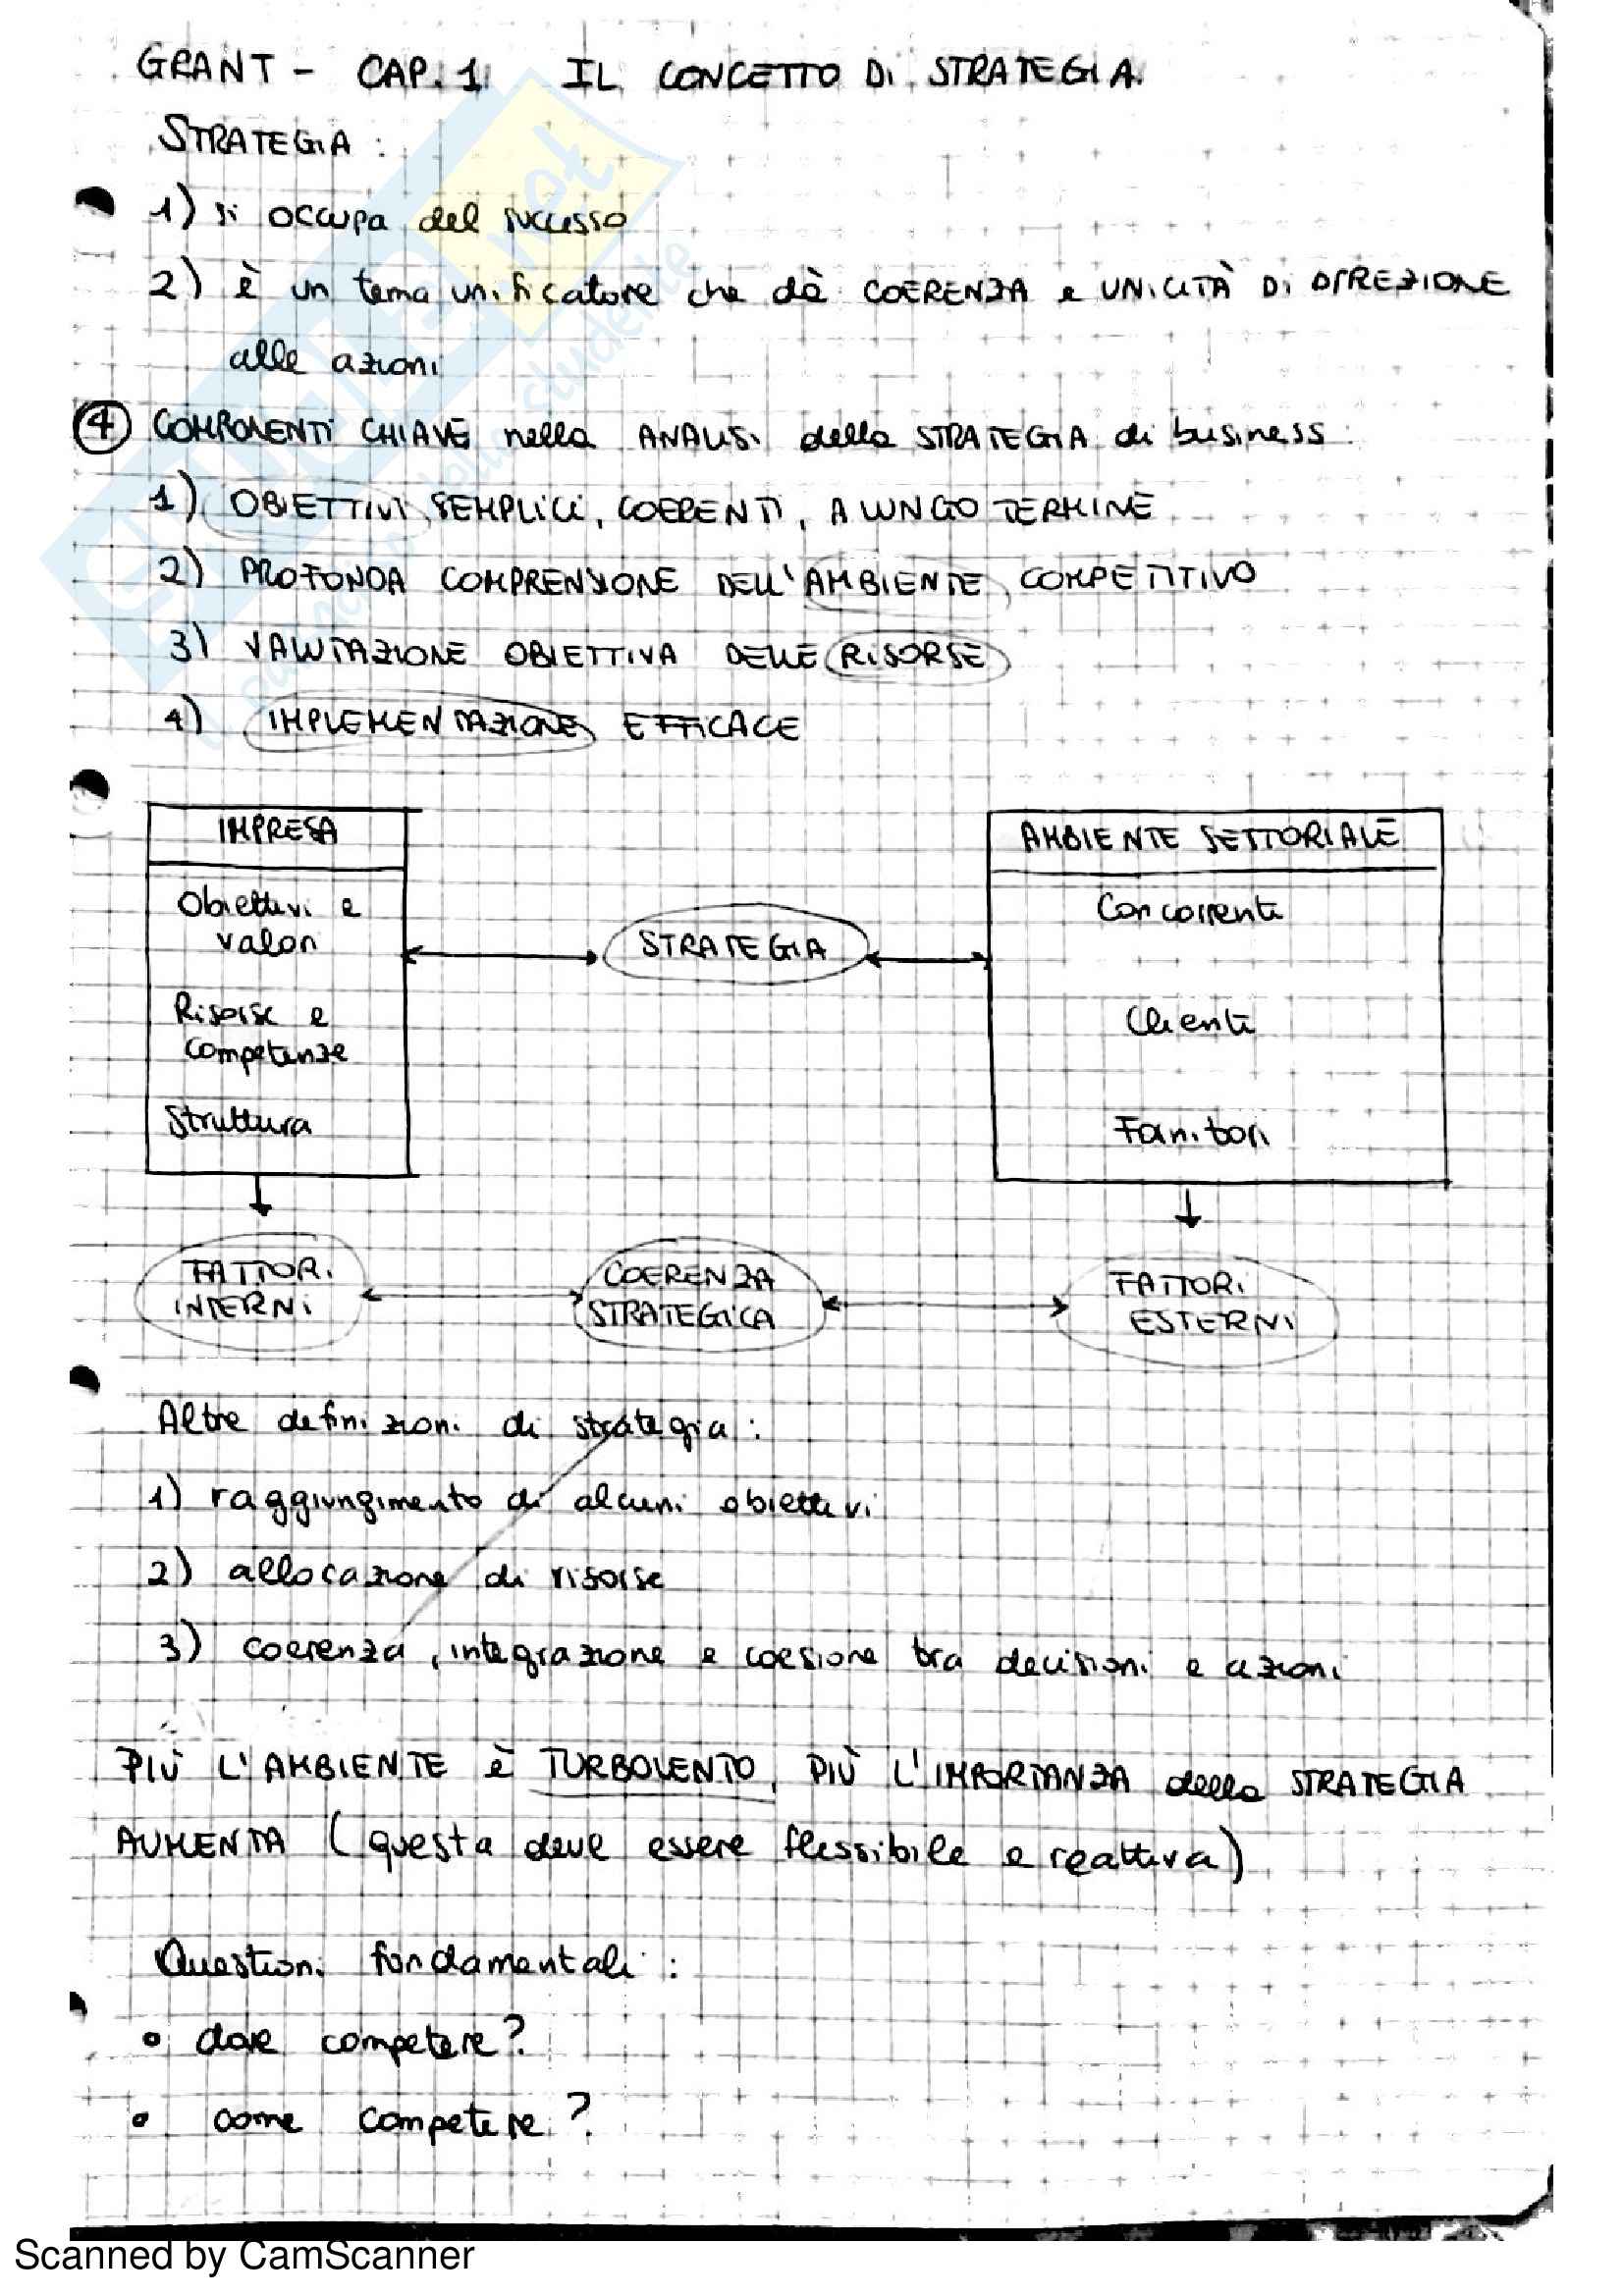 GRANT - CAP. 1 IL CONCETTO Di STRATEGIA
STRATEGIA :
1) si occupa del successo
2) è un tema unificatore che dà COERENZA e UNICITÀ Di DIREZIONE
alle azioni
④ COMPONENTI CHIAVE nella ANALISI della STRATEGIA di business :
1) OBIETTIVI SEMPLICI, COERENTI, A LUNGO TERMINE
2) PROFONDA COMPRENSIONE DELL'AMBIENTE COMPETITIVO
3) VALUTAZIONE OBIETTIVA DELLE RISORSE
4) IMPLEMENTAZIONE EFFICACE
IMPRESA
Obiettivi e
valori
Risorse e
competenze
Struttura
STRATEGIA
AMBIENTE SETTORIALE
Concorrenti
Clienti
Fornitori
FATTORI
INTERNI
COERENZA
STRATEGICA
FATTORI
ESTERNI
Altre definizioni di strategia :
1) raggiungimento di alcuni obiettivi
2) allocazione di risorse
3) coerenza, integrazione e coesione tra decisioni e azioni
PIÙ L'AMBIENTE è TURBOLENTO, PIÙ L'IMPORTANZA della STRATEGIA
AUMENTA (questa deve essere flessibile e reattiva)
Questioni fondamentali :
• dove competere?
• come competere?
Scanned by CamScanner